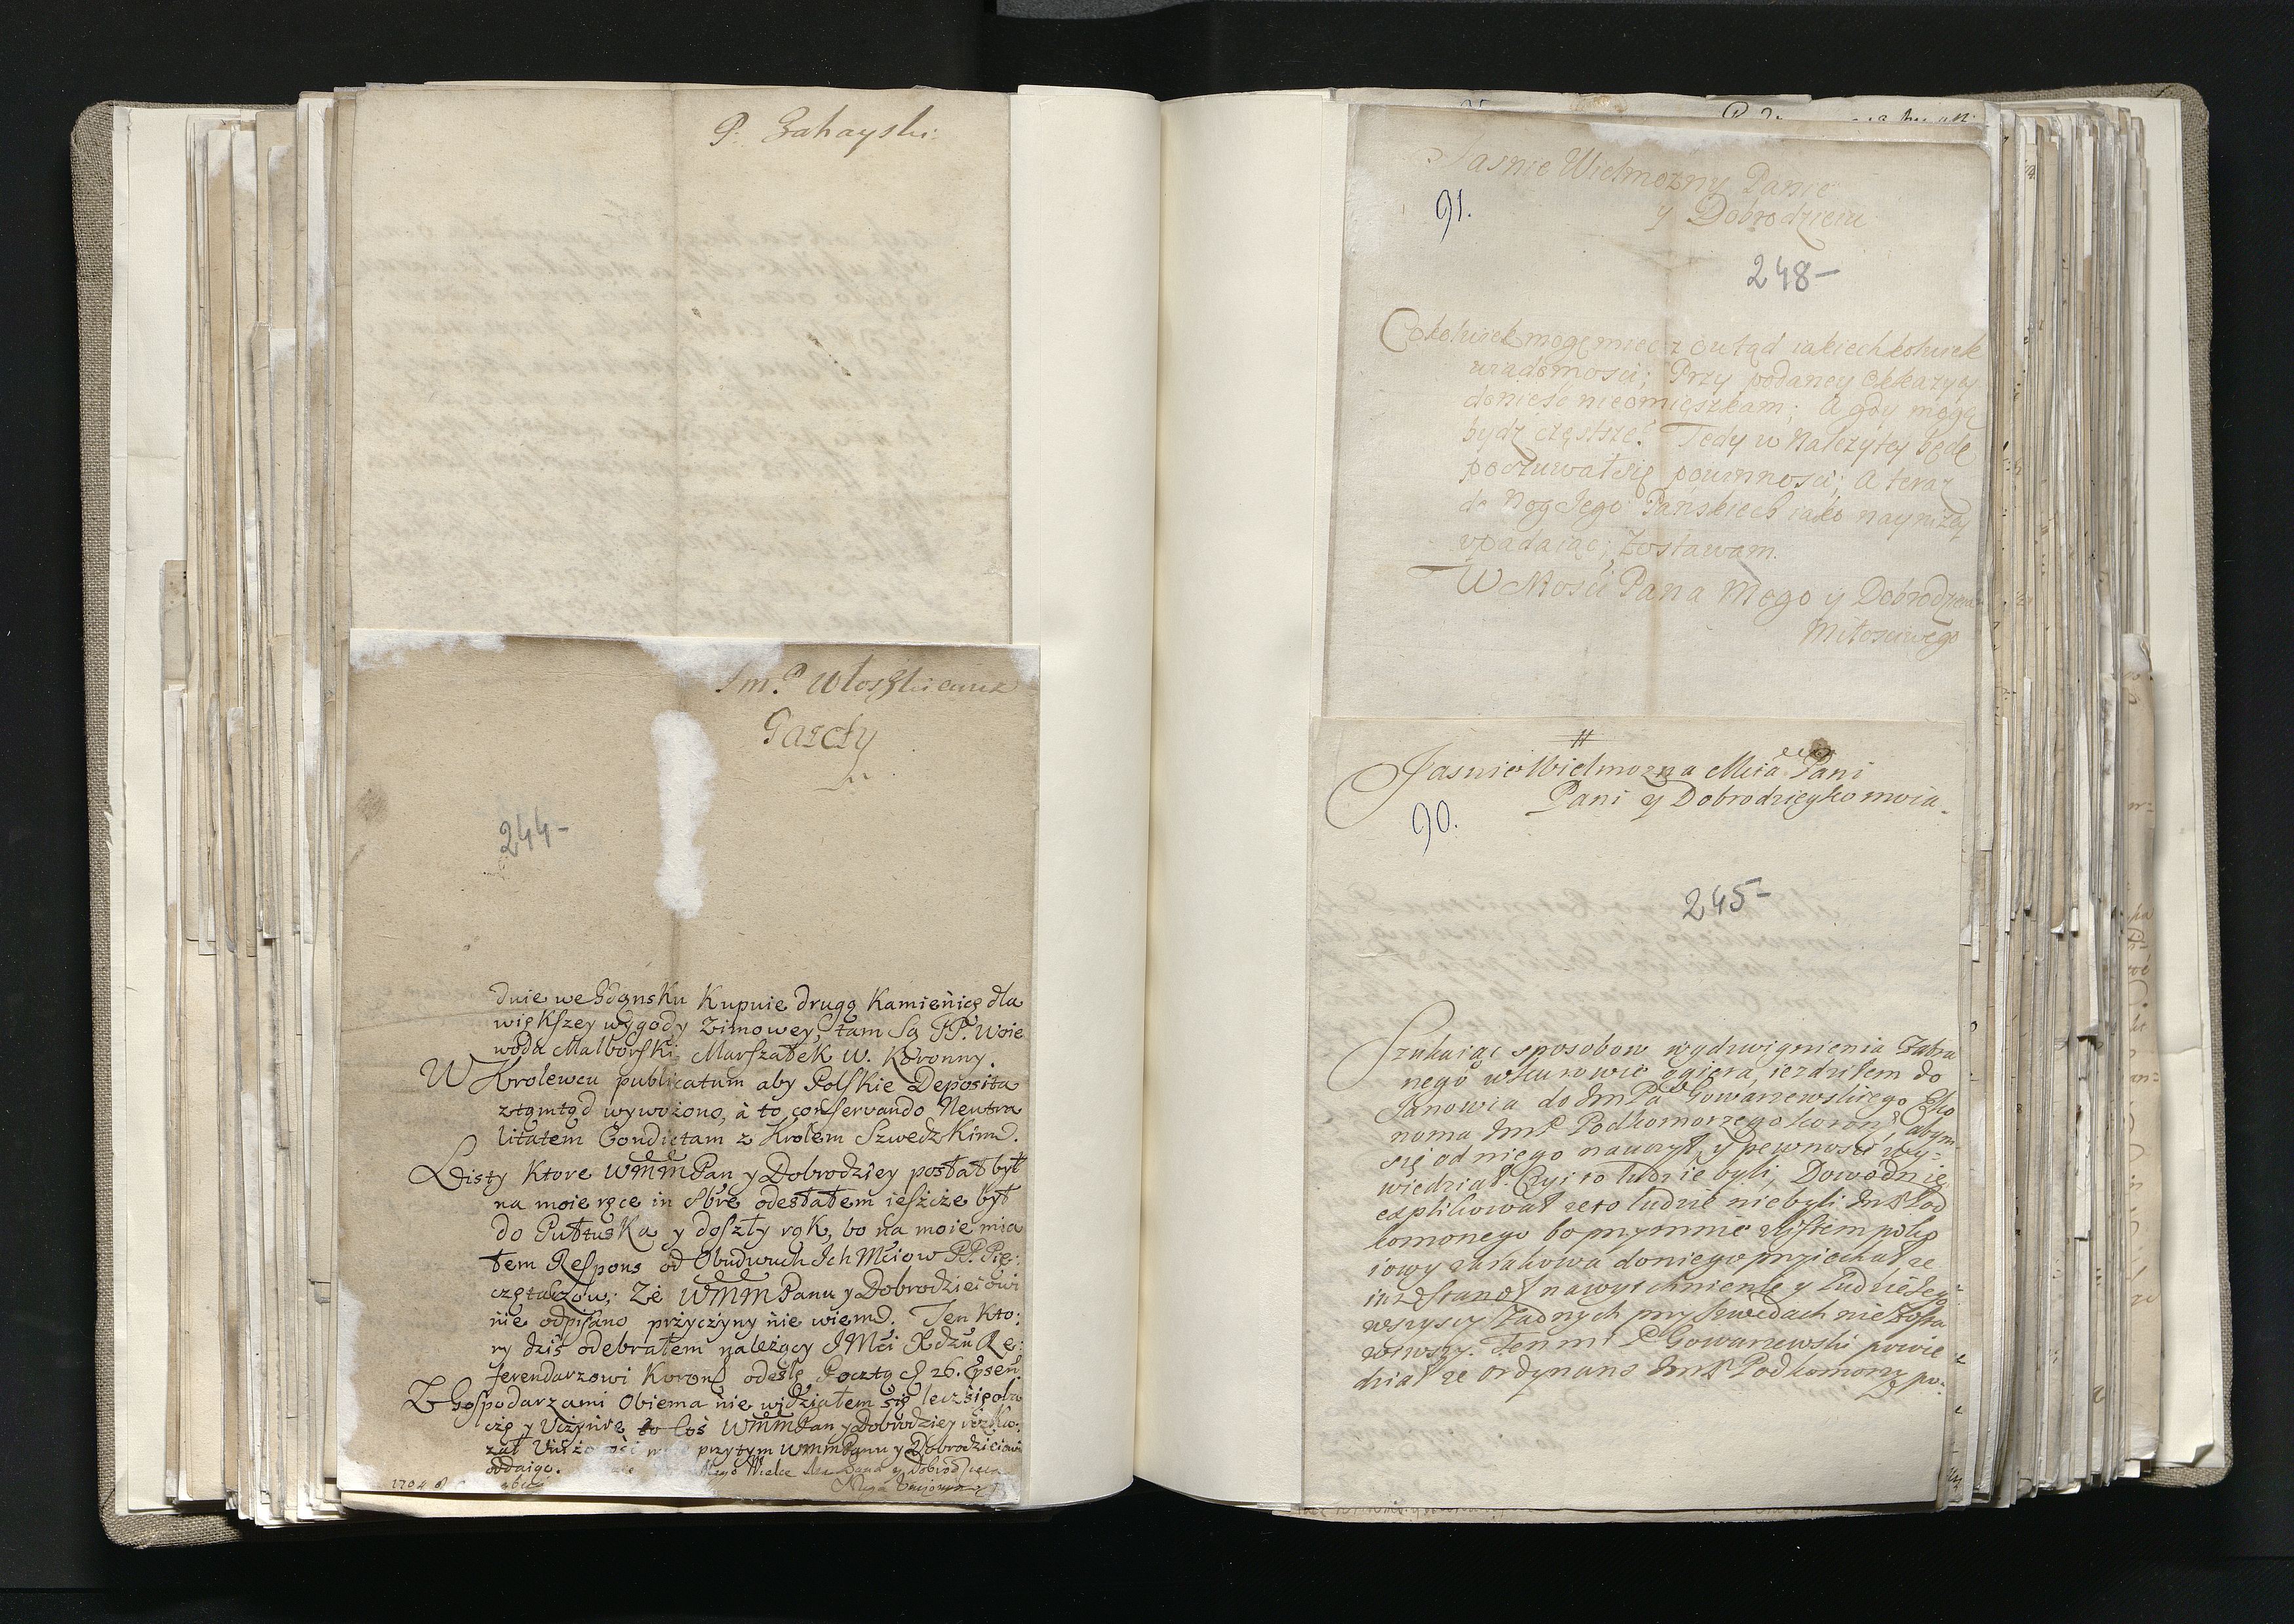 P. Zahayski.
Im.P Włoszkiewicz
Gazety
244-
dnie we Gdąnsku Kupuie drugą Kamienicę dla
więkſzey wygody Zimowey, tam Są PP. Woie
woda Malborſki, Marſzałek W. Koronny.
W Krolewcu publicatum aby Polſkie Deposita
ztąmtąd wywożono, à to conſervando Neutra
litatem Condictam z Krolem Szwedzkim.
Listy Ktore WMM Pan y Dobrodziey posłał był
na moie ręce in 8bre odesłałem ieſzcże był
do Pułtuska y doſzły rąk, bo na moie mia
łem Reſpons od Obudwuch Ich Mciow PP. Pie:
czętarzow; Że WMM Panu y Dobrodzieiowi
nie odpiſano przyczyny nie wiem. Ten Kto:
ry dziś odebrałem należący JMći Xdzu Re:
ferendarzowi Koron odeślę Pocztą 26.
Z Goſpodarzami Obiema nie widziałem się lecz
y Uczynię to Coś WMM Pan y Dobrodziey rozka:
zał przytym WMM Panu y Dobrodzieiowi
oddaię. Mego Wielce Pana y Dobrodzieia
1704
91.
Jasnie Wielmozny Panie
y Dobrodzieiu
248-
Cokolwiek mogę miec z outąd iakiechkolwiek
wiadomosci; Przy podaney okkazyey
donieść nieomieszkam; A gdy mogą
bydź częstsze? Tedy w Nalezytey będę
poczuwał się powinnosci; A teraz
do Nog Jego Pańskiech iako nayniżey
vpadaiąc; Zostawam.
W Mosci Pana Mego y Dobrodzieia
Miłosciwego
Jasnie Wielmozna Mcia Pani
Pani y Dobrodzieyko moia.
90.
245-
Szukaiąc sposobow wydzwignienia Zabra
nego wskurowie ogiera, iezdziłem do
Janowia do ImPa Gowarzewskiego Eko
noma ImP Podkomorzego koron, abym
się od niego nauczył, y pewnosci wy-
wiedział. Czyi to ludzie byli, Dowodnie
explikował ze to ludzie niebyli ImP Pod
komorzego bo przymnie z listem
iowy zkrakowa do niego przyiechał ze
iuz stanoł nawytchnienie y ludzie Jego
wszyscy Zadnych przy Szwedach nie Zosta
wiwszy. Ten mi P Gowarzewski powie
dział ze ordynans ImP Podkomorzy po: